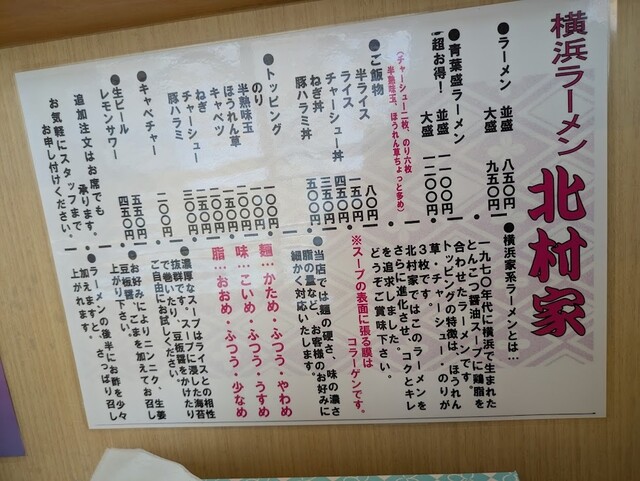 横浜ラーメン 北村家
●ラーメン 並盛 八五〇円
大盛 九五〇円
●青葉盛ラーメン
超お得! 並盛 一一〇〇円
大盛 一二〇〇円
(チャーシュー二枚、のり六枚
半熟味玉、ほうれん草ちょっと多め)
●ご飯物
半ライス 八〇円
ライス 一五〇円
チャーシュー丼 三五〇円
ねぎ丼
豚ハラミ丼 五〇〇円
●トッピング
のり 一〇〇円
半熟味玉 一〇〇円
ほうれん草 一五〇円
キャベツ
ねぎ
チャーシュー
豚ハラミ
●キャベチャー 二〇〇円
●生ビール 五五〇円
レモンサワー 四五〇円
追加注文はお席でも
承ります。
お気軽にスタッフまで
お申し付けください。
●横浜家系ラーメンとは…
一九七〇年代に横浜で生まれた
とんこつ醤油スープに鶏脂を
合わせたラーメンです。
トッピングの特徴は、ほうれん
草・チャーシュー・のりが
3枚です。
北村家ではこのラーメンを
さらに進化させ、コクとキレ
を追求しました。
どうぞご賞味下さい。
※スープの表面に張る膜は
コラーゲンです。
●当店では麺の硬さ、味の濃さ
脂の量など、お客様のお好みに
細かく対応いたします。
麺…かため・ふつう・やわめ
味…こいめ・ふつう・うすめ
脂…おおめ・ふつう・少なめ
●濃厚なスープはライスとの相性
抜群です。スープに浸した海苔
で巻いたり、豆板醤をかけたり
ご自由にお試しください。
●お好みによりニンニク、生姜
豆板醤、ごまを加えてお召し
上がり下さい。
●ラーメンの後半にお酢を少々
加えますと、さっぱり召し
上がれます。